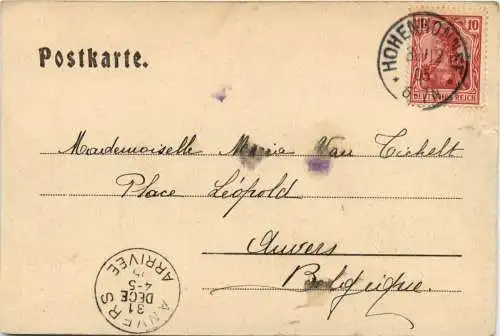 Postkarte.
10
DEUTSCHES REICH
HOHENHONNEF
Mademoiselle Maria Van Tichelt
Place Léopold
Anvers
Belgique.
ANVERS
31
DECE
4-5
ARRIVÉE